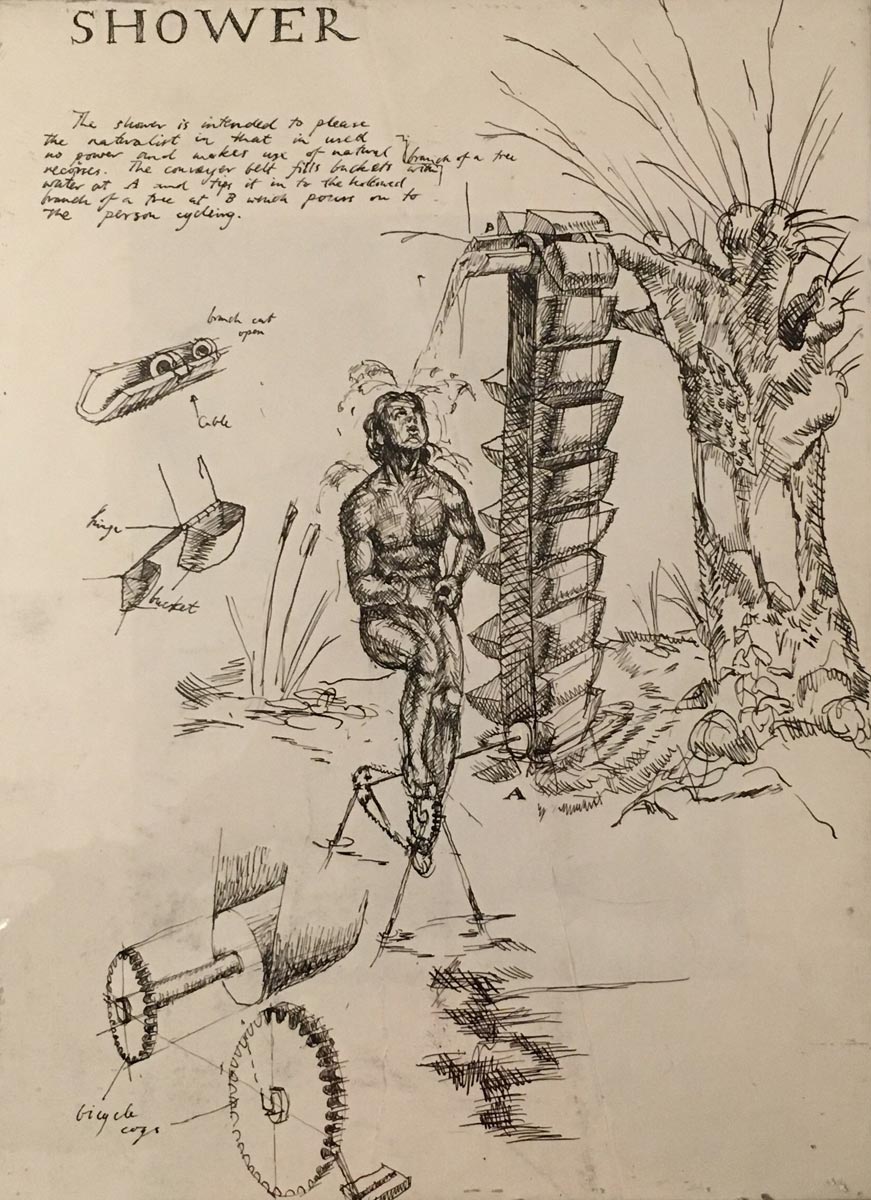 SHOWER
The shower is intended to please
the naturalist in that in used
no power and makes use of natural
recorses. The conveyor belt fills buckets with
water at A and tips it in to the hollowed
branch of a tree at B which pours on to
the person cycling.
branch of a tree
B
branch cut
open
Cable
hinge
bucket
A
bicycle
cogs